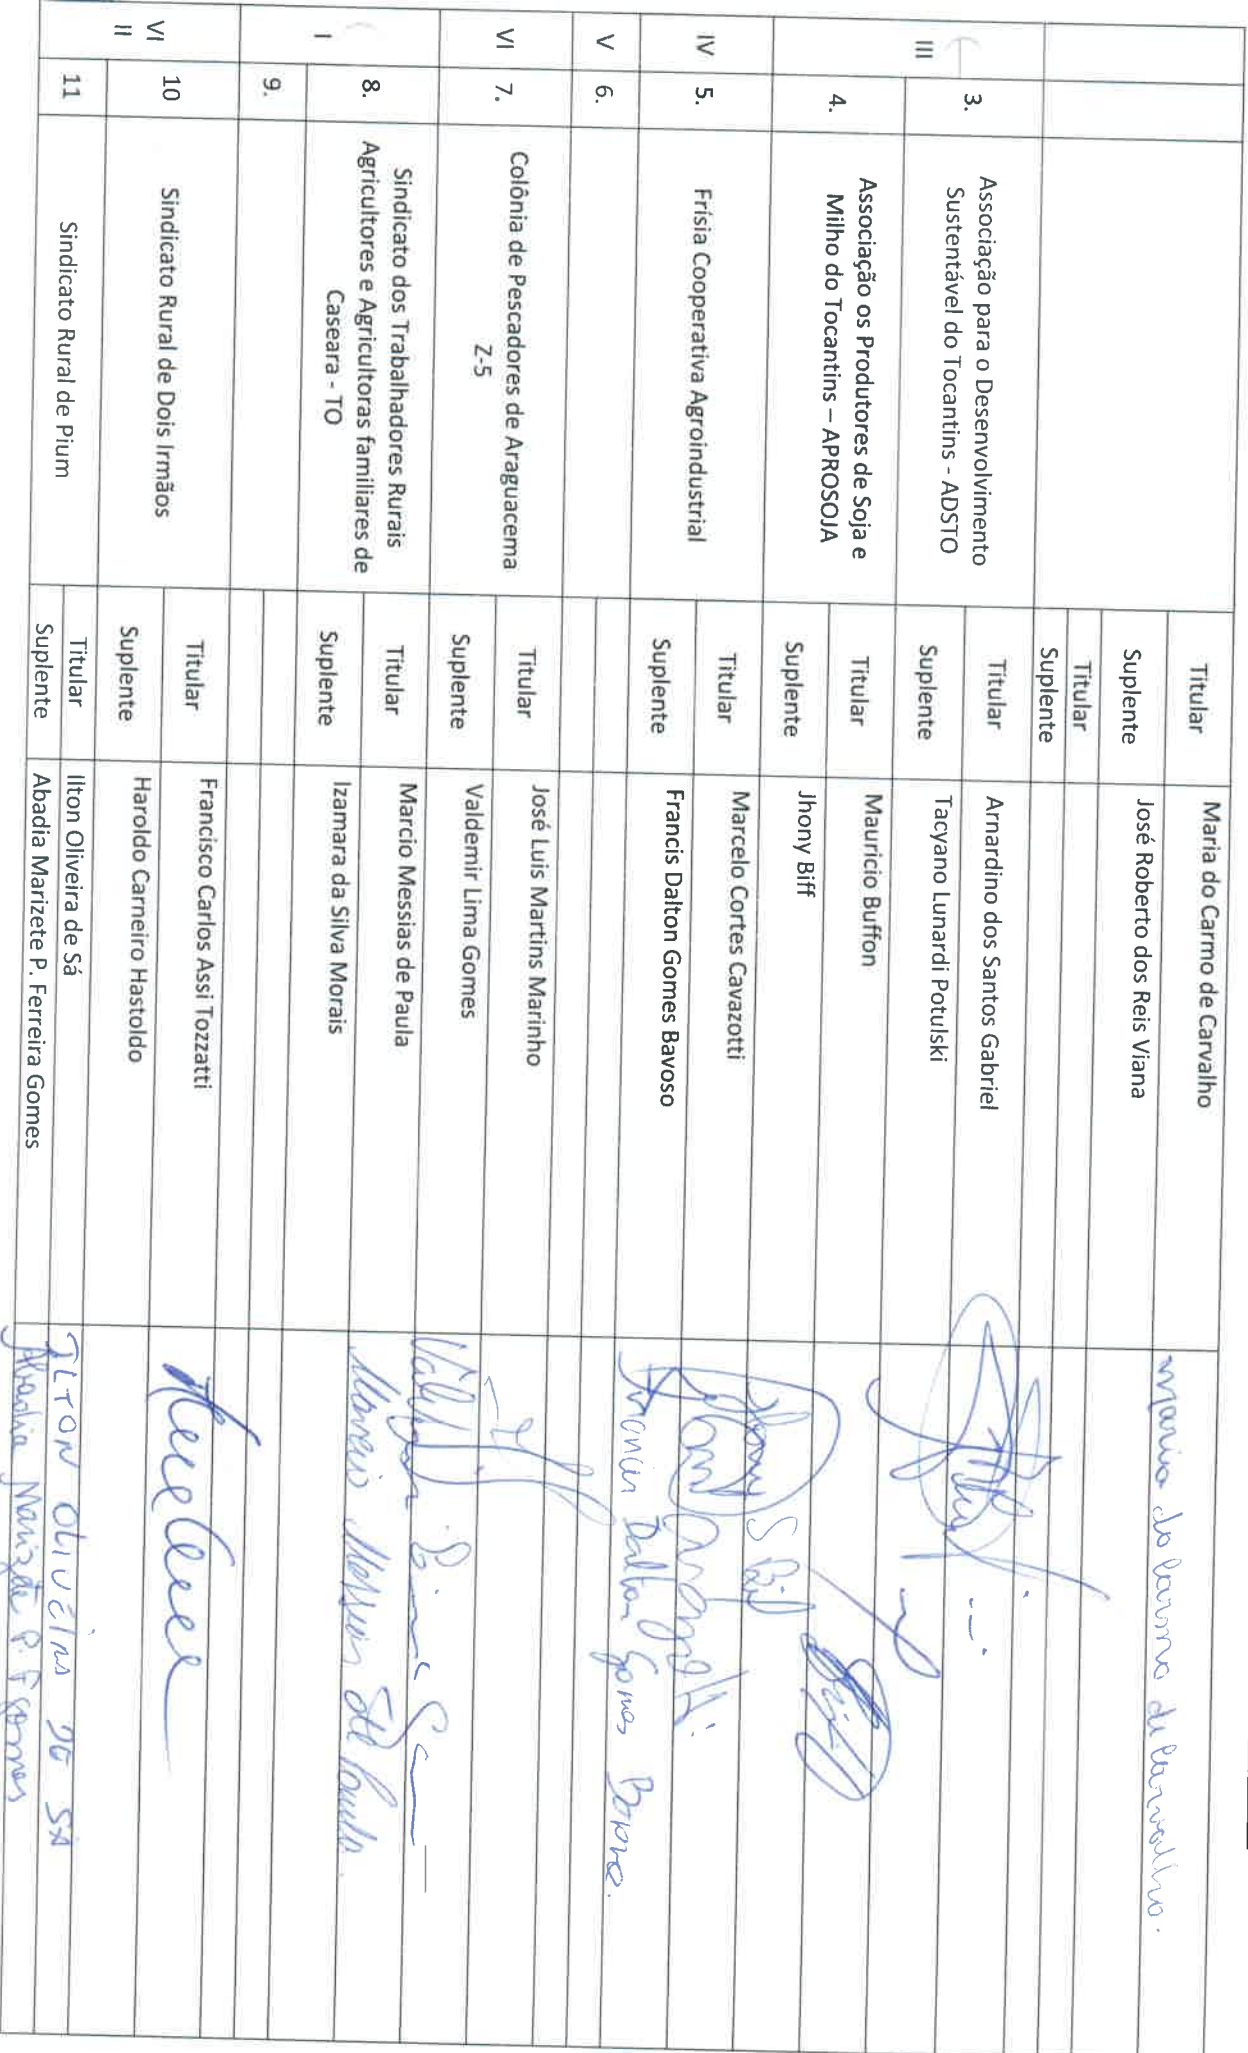 Titular Maria do Carmo de Carvalho Maria do Carmo de Carvalho.
Suplente José Roberto dos Reis Viana
Titular
Suplente
III 3. Associação para o Desenvolvimento
Sustentável do Tocantins - ADSTO
Titular Arnardino dos Santos Gabriel
Suplente Tacyano Lunardi Potulski
4. Associação os Produtores de Soja e
Milho do Tocantins – APROSOJA
Titular Mauricio Buffon
Suplente Jhony Biff
IV 5. Frísia Cooperativa Agroindustrial
Titular Marcelo Cortes Cavazotti
Suplente Francis Dalton Gomes Bavoso Francis Dalton Gomes Bavoso.
V 6.
VI 7. Colônia de Pescadores de Araguacema
Z-5
Titular José Luis Martins Marinho
Suplente Valdemir Lima Gomes
I 8. Sindicato dos Trabalhadores Rurais
Agricultores e Agricultoras familiares de
Caseara - TO
Titular Marcio Messias de Paula Marcio Messias de Paula.
Suplente Izamara da Silva Morais
9.
VI
II
10 Sindicato Rural de Dois Irmãos
Titular Francisco Carlos Assi Tozzatti
Suplente Haroldo Carneiro Hastoldo
11 Sindicato Rural de Pium
Titular Ilton Oliveira de Sá ILTON OLIVEIRA DE SÁ
Suplente Abadia Marizete P. Ferreira Gomes Abadia Marizete P. F Gomes